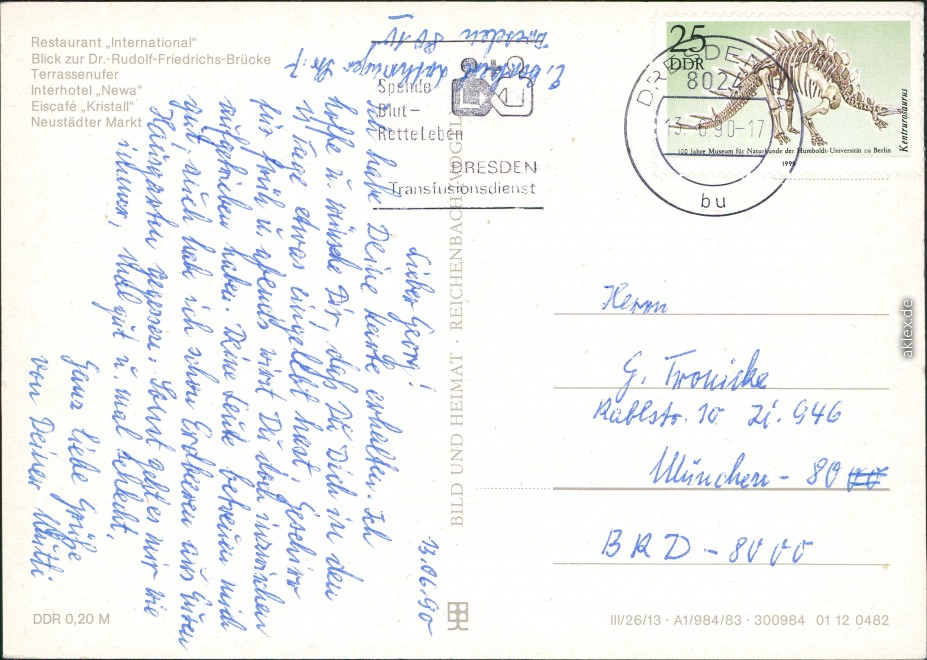 Restaurant „International“
Blick zur Dr.-Rudolf-Friedrichs-Brücke
Terrassenufer
Interhotel „Newa“
Eiscafé „Kristall“
Neustädter Markt
Dresden 8010
Spende
Blut-
Rette Leben
DRESDEN
Transfusionsdienst
25
DDR
Kentrurosaurus
100 Jahre Museum für Naturkunde der Humboldt-Universität zu Berlin
1990
DRESDEN
8024
13.6.90-17
bu
13.06.90
Lieber Georg!
Ich habe Deine Karte erhalten. Ich
hoffe u. wünsche Dir, daß Du Dich in den
Tage etwas eingelebt hast. Geschirr
für früh u. abends wirst Du doch inzwischen
haben. Deine Leute betreuen mich
gut, auch hab ich schon Erdbeeren aus Euren
Hausgarten gegessen. Sonst geht es mir wie
immer, mal gut u. mal schlecht.
Ganz liebe Grüße
von Deiner Mutti
BILD UND HEIMAT · REICHENBACH VOGTL
Herrn
G. Tronicke
Rablstr. 10 Zi. 946
München - 80
BRD - 8000
DDR 0,20 M
III/26/13 · A1/984/83 · 300984 01 12 0482
aklex.de